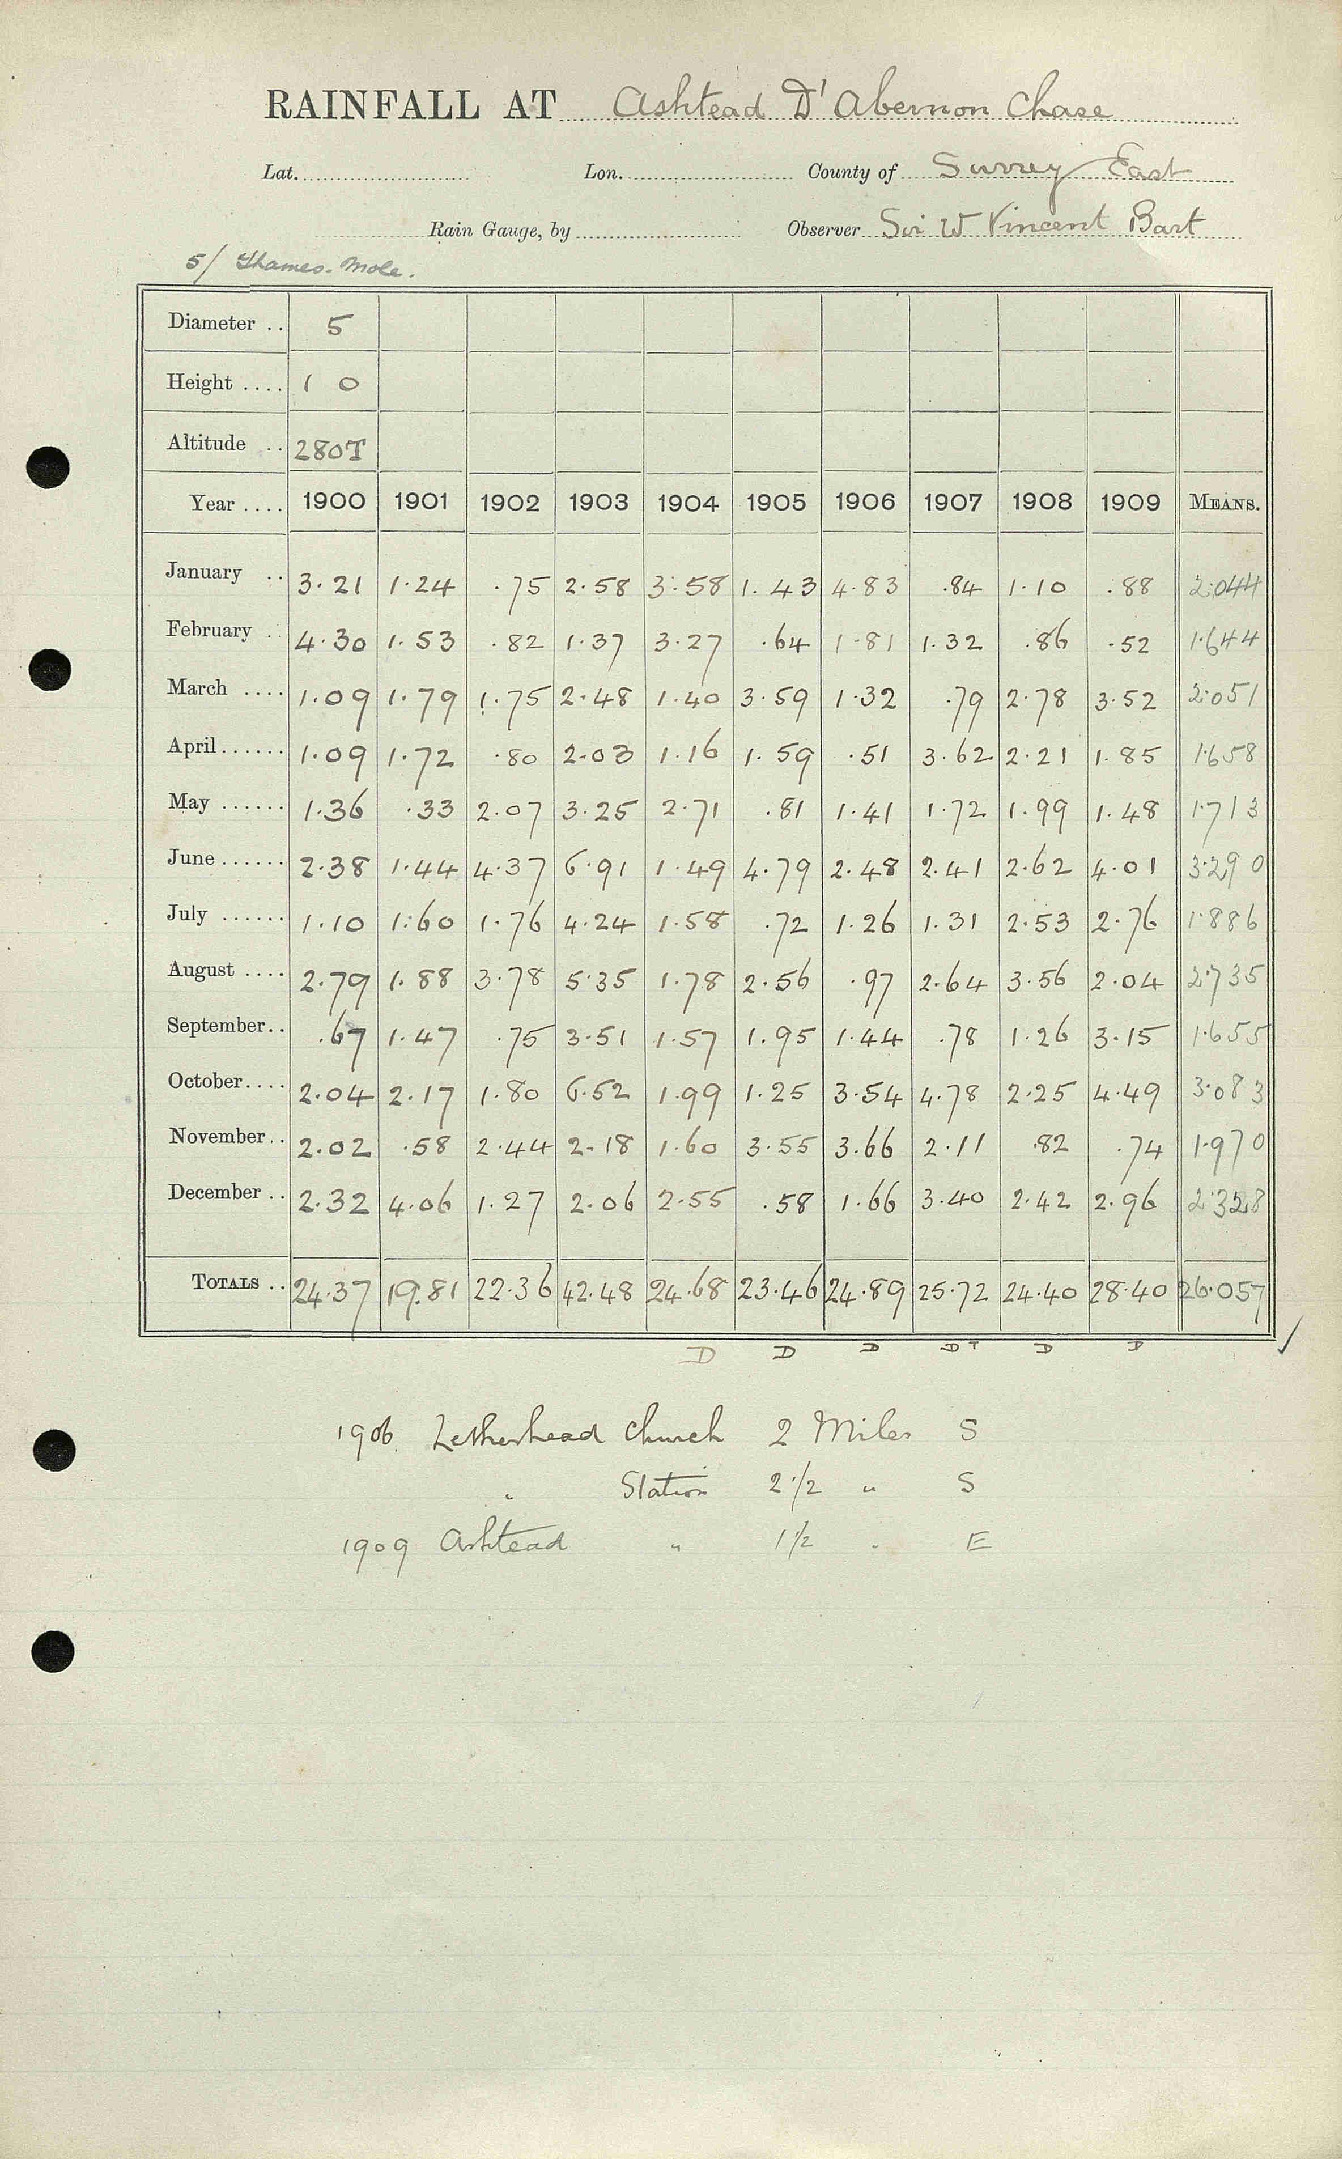 RAINFALL AT Ashtead D'Abernon Chase
Lat. Lon. County of Surrey East
Rain Gauge, by Observer Sir W Vincent Bart
5/ Thames. Mole.
Diameter .. 5
Height .... 1 0
Altitude .. 280T
Year .... 1900 1901 1902 1903 1904 1905 1906 1907 1908 1909 MEANS.
January .. 3.21 1.24 .75 2.58 3.58 1.43 4.83 .84 1.10 .88 2.044
February .. 4.30 1.53 .82 1.37 3.27 .64 1.81 1.32 .86 .52 1.644
March .... 1.09 1.79 1.75 2.48 1.40 3.59 1.32 .79 2.78 3.52 2.051
April...... 1.09 1.72 .80 2.03 1.16 1.59 .51 3.62 2.21 1.85 1.658
May ...... 1.36 .33 2.07 3.25 2.71 .81 1.41 1.72 1.99 1.48 1.713
June...... 2.38 1.44 4.37 6.91 1.49 4.79 2.48 2.41 2.62 4.01 3.290
July ...... 1.10 1.60 1.76 4.24 1.58 .72 1.26 1.31 2.53 2.76 1.886
August .... 2.79 1.88 3.78 5.35 1.78 2.56 .97 2.64 3.56 2.04 2.735
September.. .67 1.47 .75 3.51 1.57 1.95 1.44 .78 1.26 3.15 1.655
October.... 2.04 2.17 1.80 6.52 1.99 1.25 3.54 4.78 2.25 4.49 3.083
November.. 2.02 .58 2.44 2.18 1.60 3.55 3.66 2.11 .82 .74 1.970
December .. 2.32 4.06 1.27 2.06 2.55 .58 1.66 3.40 2.42 2.96 2.328
TOTALS .. 24.37 19.81 22.36 42.48 24.68 23.46 24.89 25.72 24.40 28.40 26.057
D D D DT D D
1906 Letherhead Church 2 Miles S
" Station 2 1/2 " S
1909 Ashtead " 1 1/2 " E